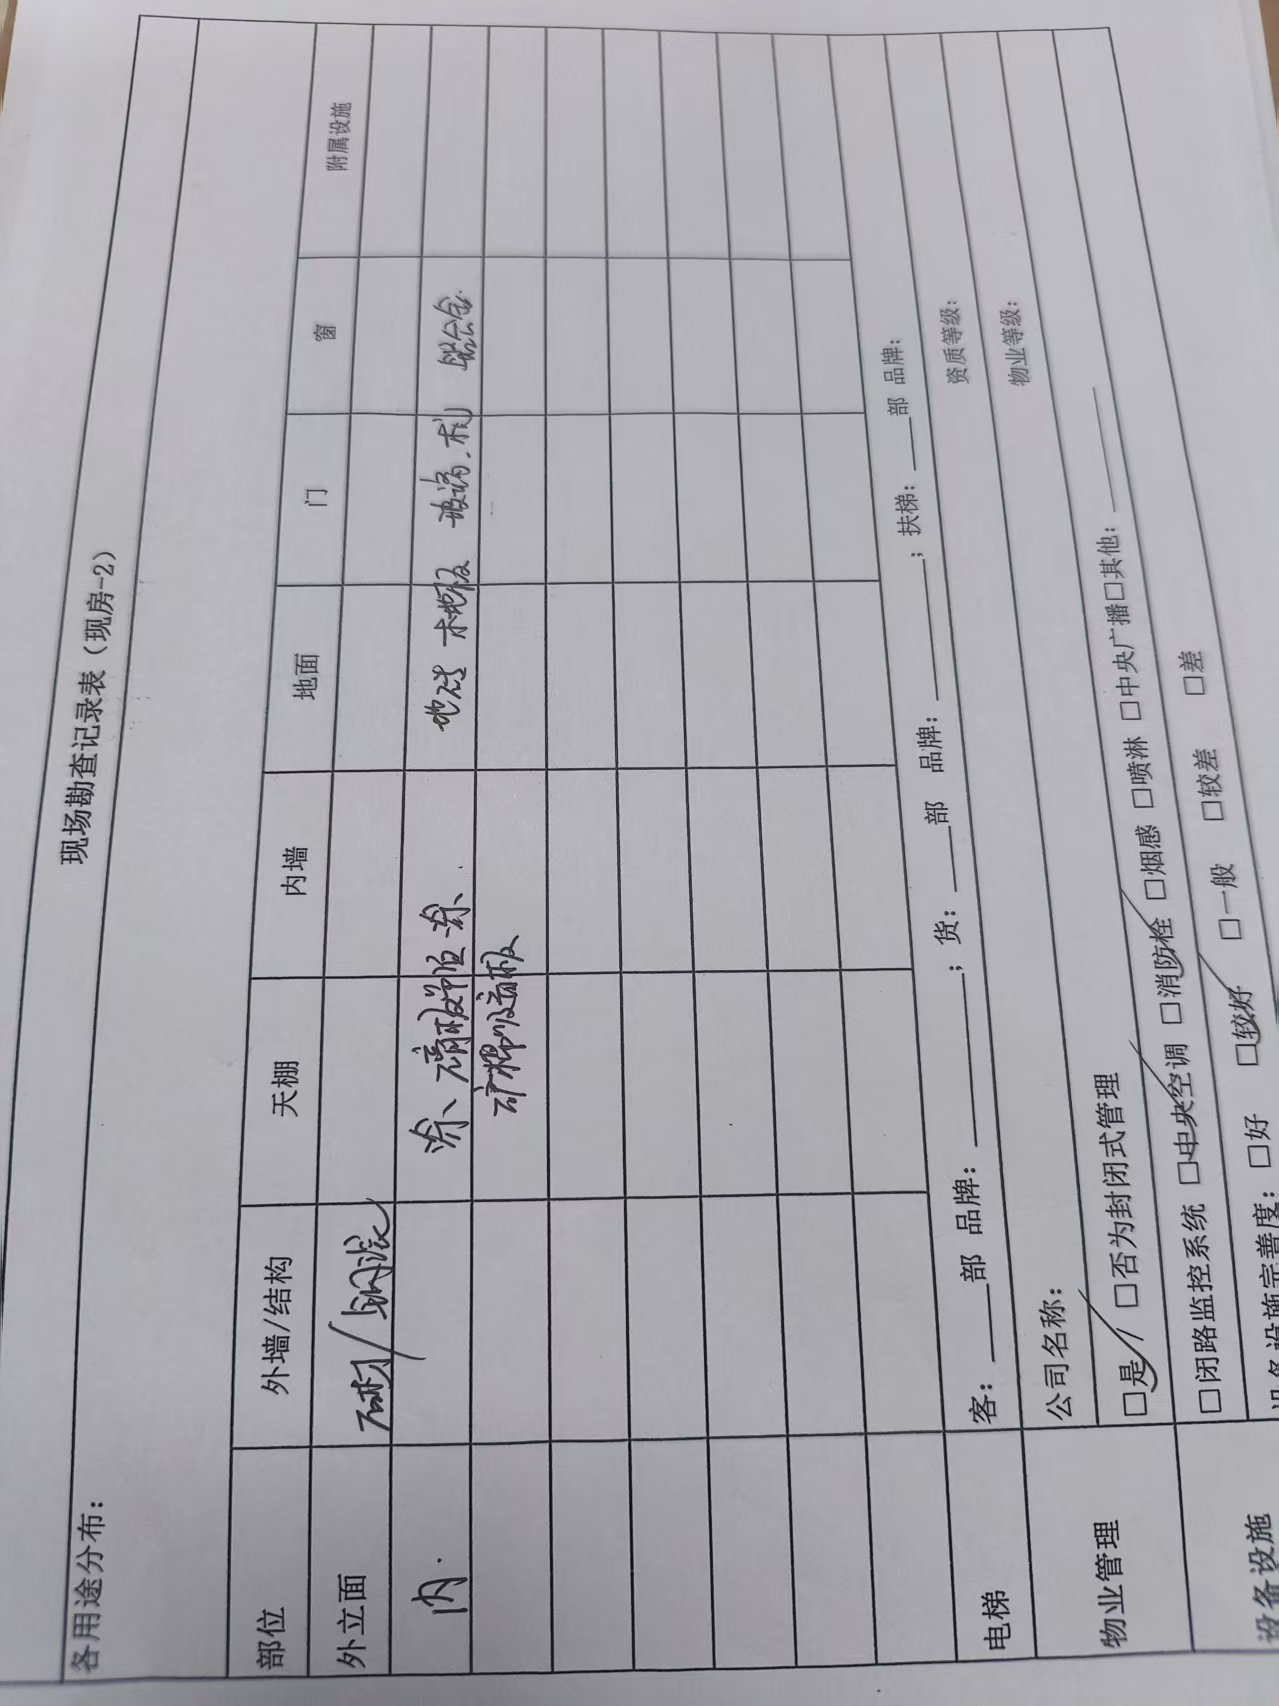 现场勘查记录表（现房-2）
各用途分布：
部位 外墙/结构 天棚 内墙 地面 门 窗 附属设施
外立面 石材/钢混
内. 涂、石膏板造 涂. 地砖 木地板 玻璃、木 铝合金.
矿棉吸音板
电梯 客：____部 品牌：________；货：____部 品牌：________；扶梯：____部 品牌：
物业管理 公司名称： 资质等级：
□是 / □否为封闭式管理 物业等级：
设备设施 □闭路监控系统 □中央空调 □消防栓 □烟感 □喷淋 □中央广播□其他：________
设备设施完善度：□好 □较好 □一般 □较差 □差